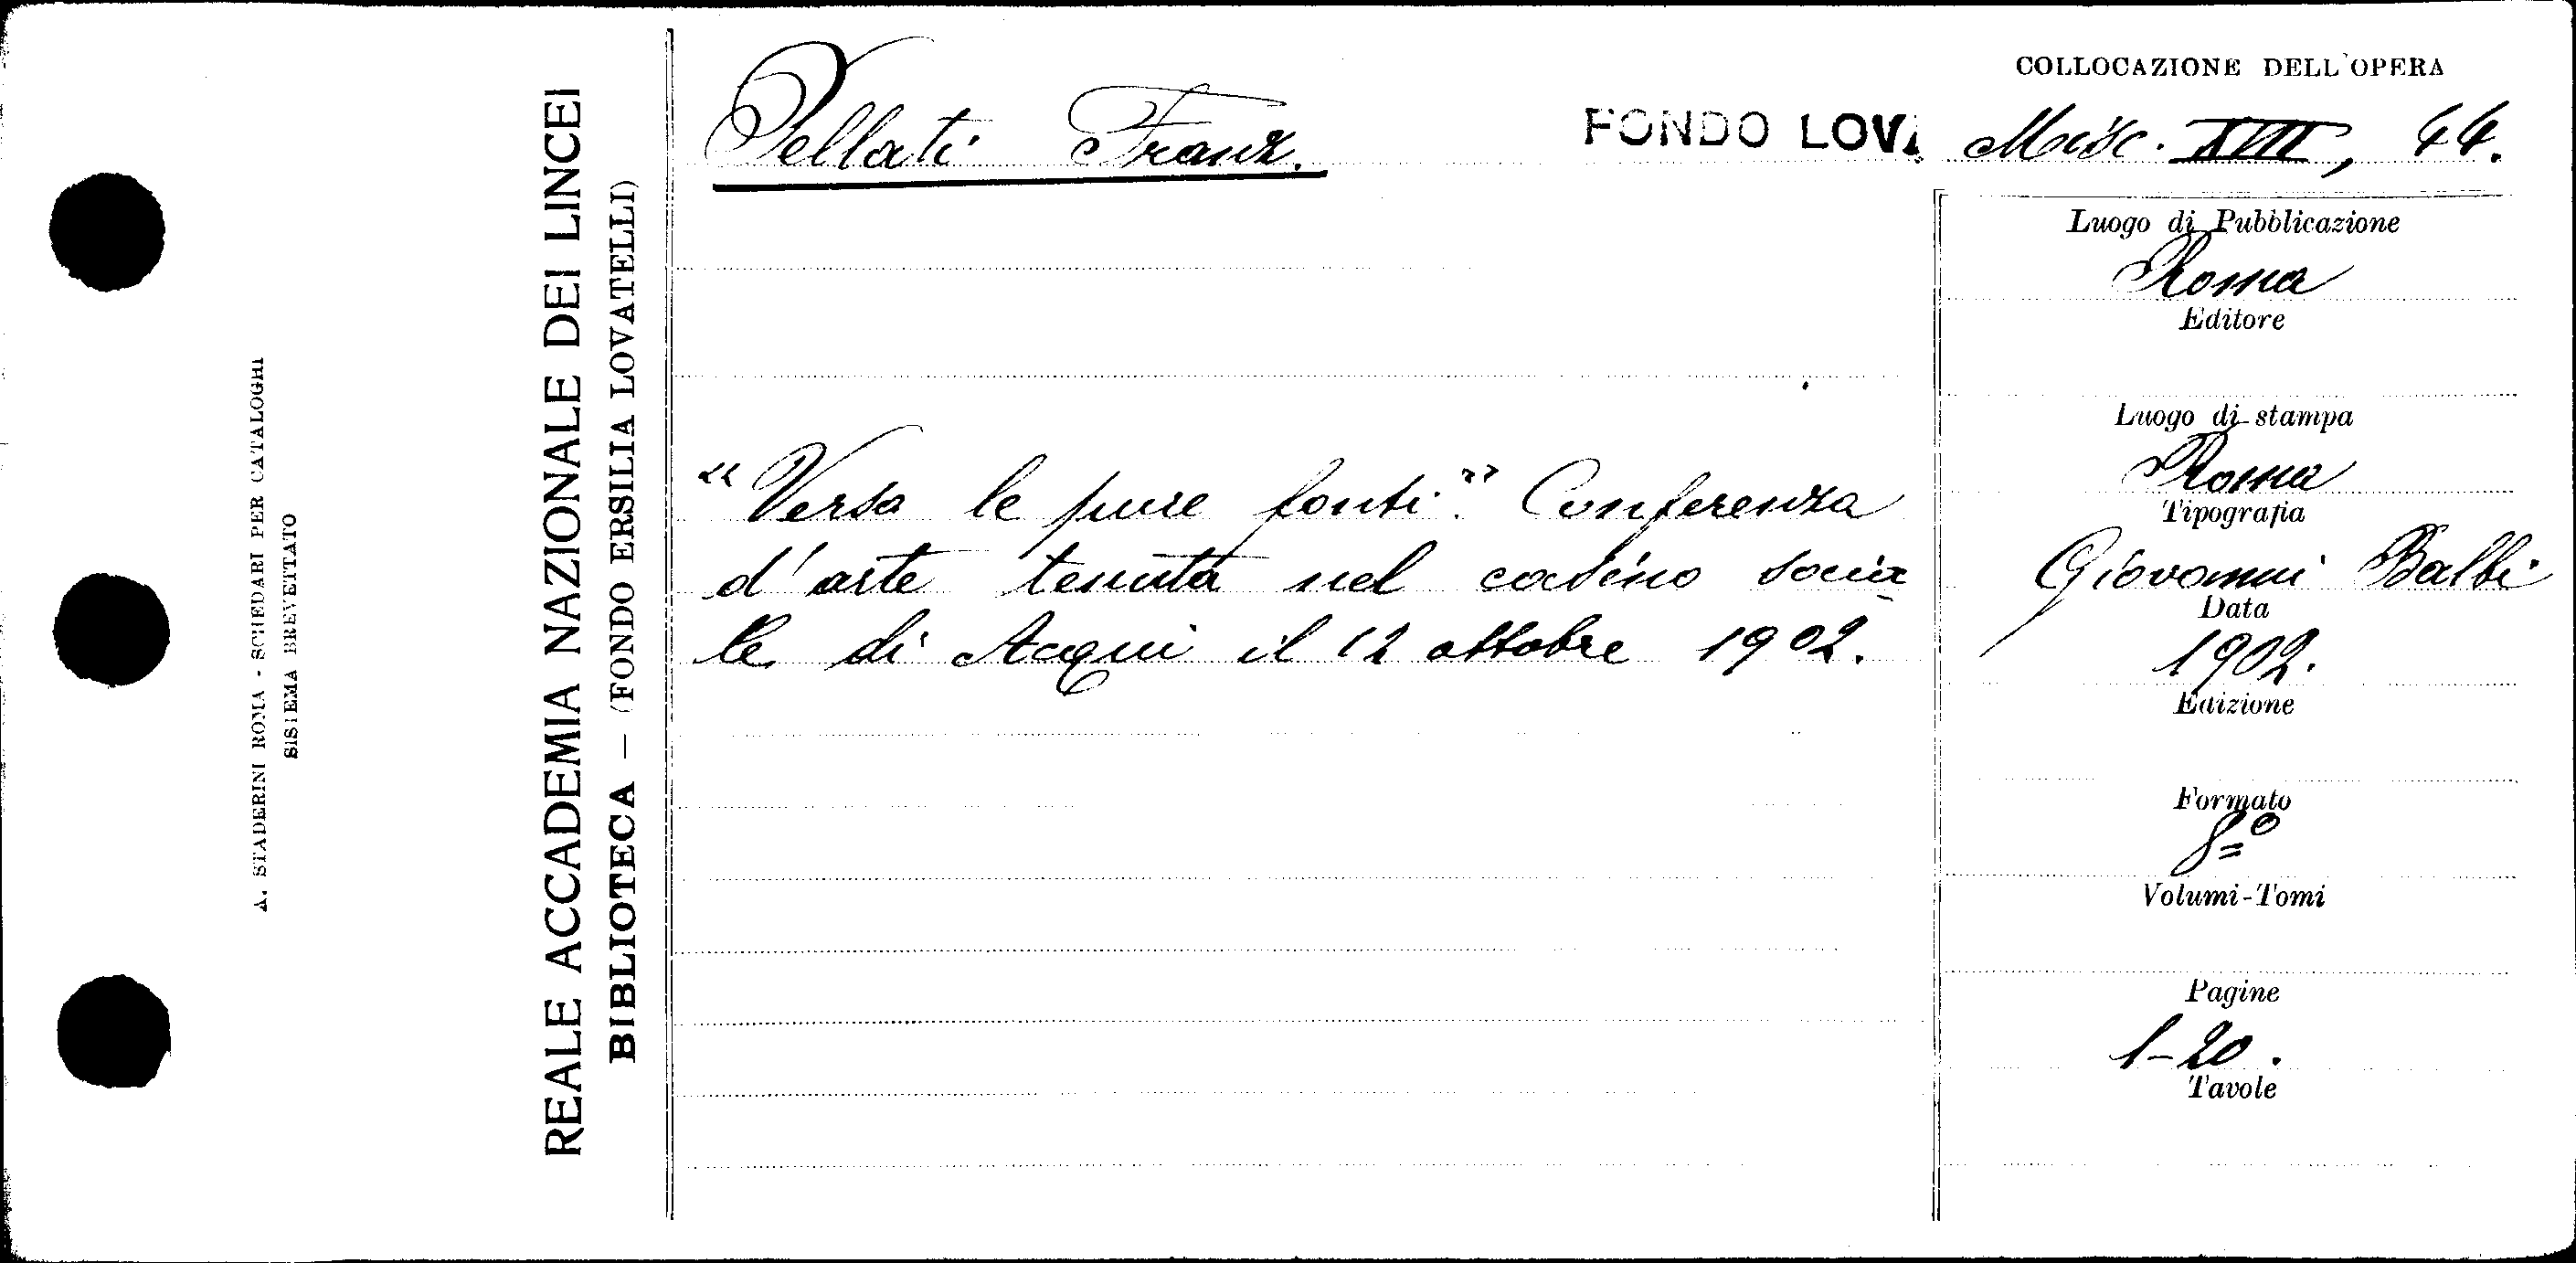 A. STADERINI ROMA - SCHEDARI PER CATALOGHI
SISTEMA BREVETTATO
REALE ACCADEMIA NAZIONALE DEI LINCEI
BIBLIOTECA — (FONDO ERSILIA LOVATELLI)
Pellati Franz.
FONDO LOVA
COLLOCAZIONE DELL'OPERA
Misc. XVII, 44.
"Verso le pure fonti." Conferenza
d'arte tenuta nel casino socia
le di Acqui il 12 ottobre 1902.
Luogo di Pubblicazione
Roma
Editore
Luogo di stampa
Roma
Tipografia
Giovanni Balbi
Data
1902.
Edizione
Formato
8º
Volumi-Tomi
Pagine
1-20.
Tavole